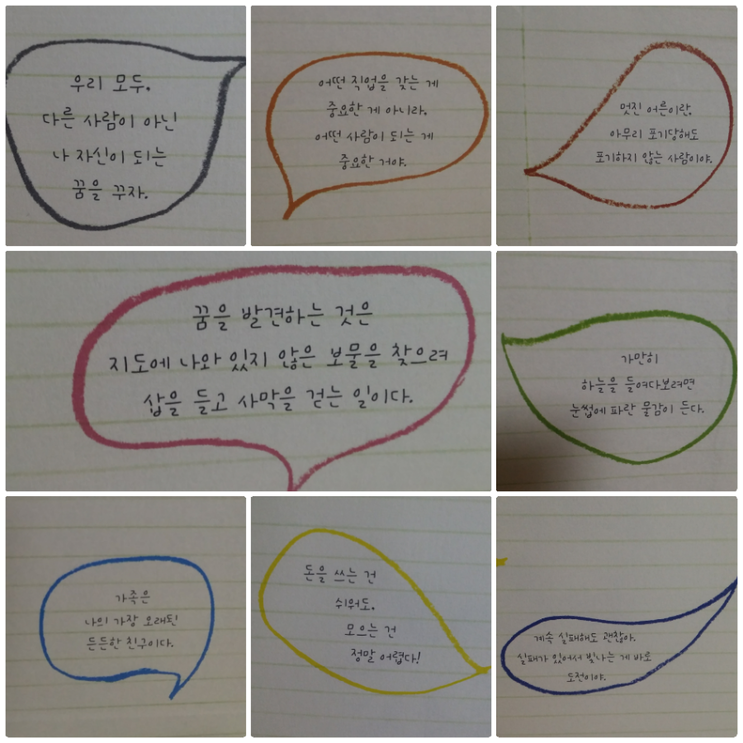 우리 모두.
다른 사람이 아닌
나 자신이 되는
꿈을 꾸자.
어떤 직업을 갖는 게
중요한 게 아니라.
어떤 사람이 되는 게
중요한 거야.
멋진 어른이란.
아무리 포기당해도
포기하지 않는 사람이야.
꿈을 발견하는 것은
지도에 나와 있지 않은 보물을 찾으려
삽을 들고 사막을 걷는 일이다.
가만히
하늘을 들여다보려면
눈썹에 파란 물감이 든다.
가족은
나의 가장 오래된
든든한 친구이다.
돈을 쓰는 건
쉬워도.
모으는 건
정말 어렵다!
계속 실패해도 괜찮아.
실패가 있어서 빛나는 게 바로
도전이야.